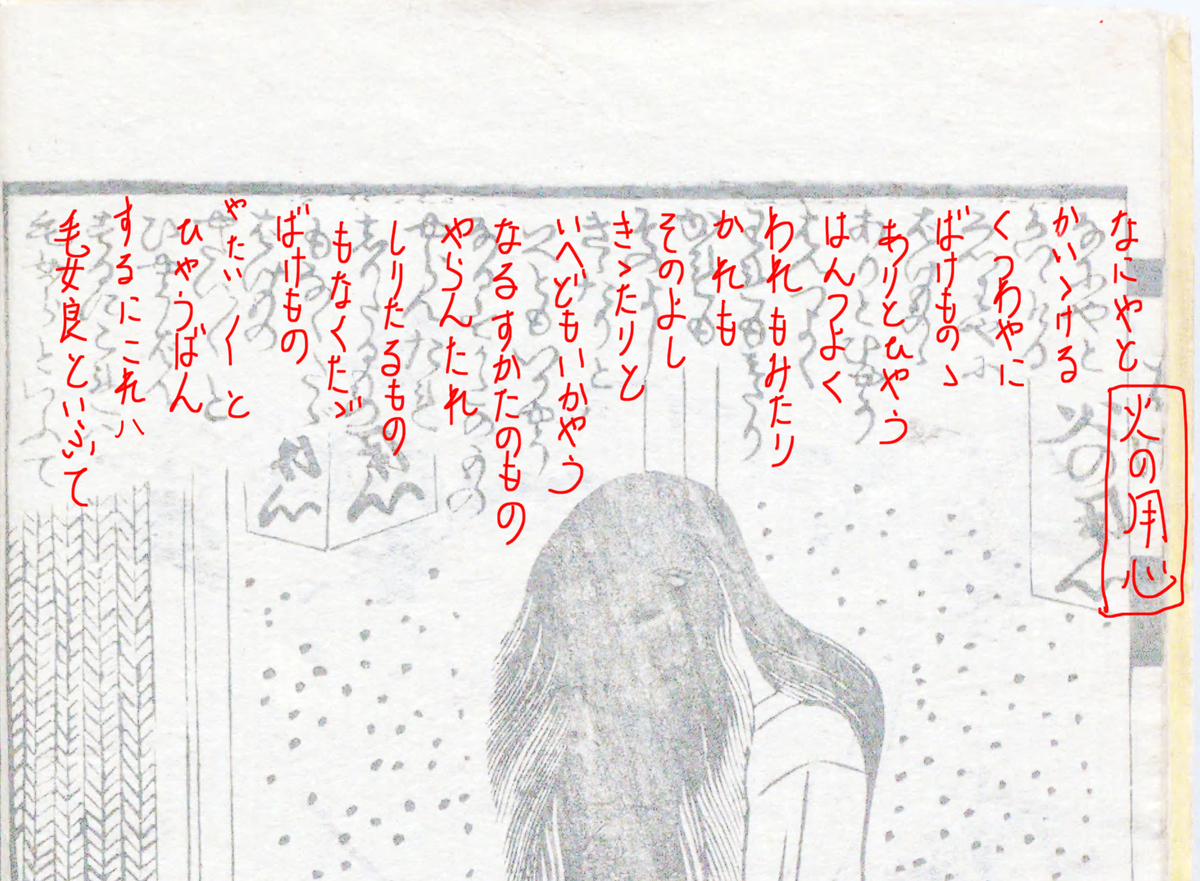 なにやと
かいゝける
くつわやに
ばけものゝ
ありとひやう
はんつよく
われもみたり
かれも
そのよし
きゝたりと
いへどもいかやう
なるすかたのもの
やらんたれ
しりたるもの
もなくたゞ
ばけもの
やたい〳〵と
ひやうばん
するにこれハ
毛女良といふて
火の用心